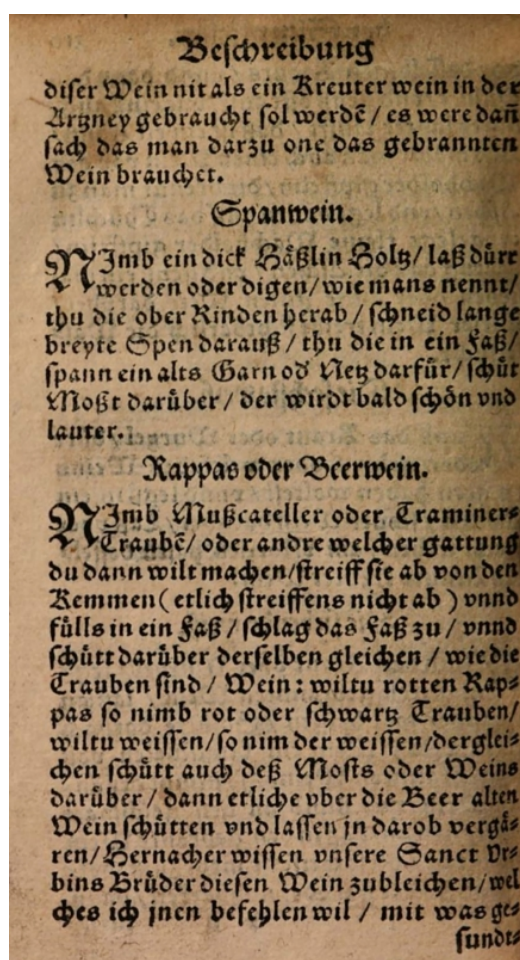 Beschreibung
diser Wein nit als ein Kreuter wein in der
Artzney gebraucht sol werdē / es were dañ
sach das man darzu one das gebrannten
Wein brauchet.
Spanwein.
NImb ein dick Häßlin Holtz / laß dürr
werden oder digen / wie mans nennt /
thu die ober Rinden herab / schneid lange
breyte Spen darauß / thu die in ein Faß /
spann ein alts Garn od' Netz darfür / schüt
Moßt darüber / der wirdt bald schön vnd
lauter.
Rappas oder Beerwein.
NImb Mußcateller oder Traminer-
Traubē / oder andre welcher gattung
du dann wilt machen / streiff sie ab von den
Kemmen ( etlich streiffens nicht ab ) vnnd
fülls in ein Faß / schlag das Faß zu / vnnd
schütt darüber derselben gleichen / wie die
Trauben sind / Wein : wiltu rotten Rap-
pas so nimb rot oder schwartz Trauben /
wiltu weissen / so nim der weissen / derglei-
chen schütt auch deß Mosts oder Weins
darüber / dann etliche vber die Beer alten
Wein schütten vnd lassen jn darob vergä-
ren / Hernacher wissen vnsere Sanct Vr-
bins Brüder diesen Wein zubleichen / wel
ches ich jnen befehlen wil / mit was ge-
sundt-